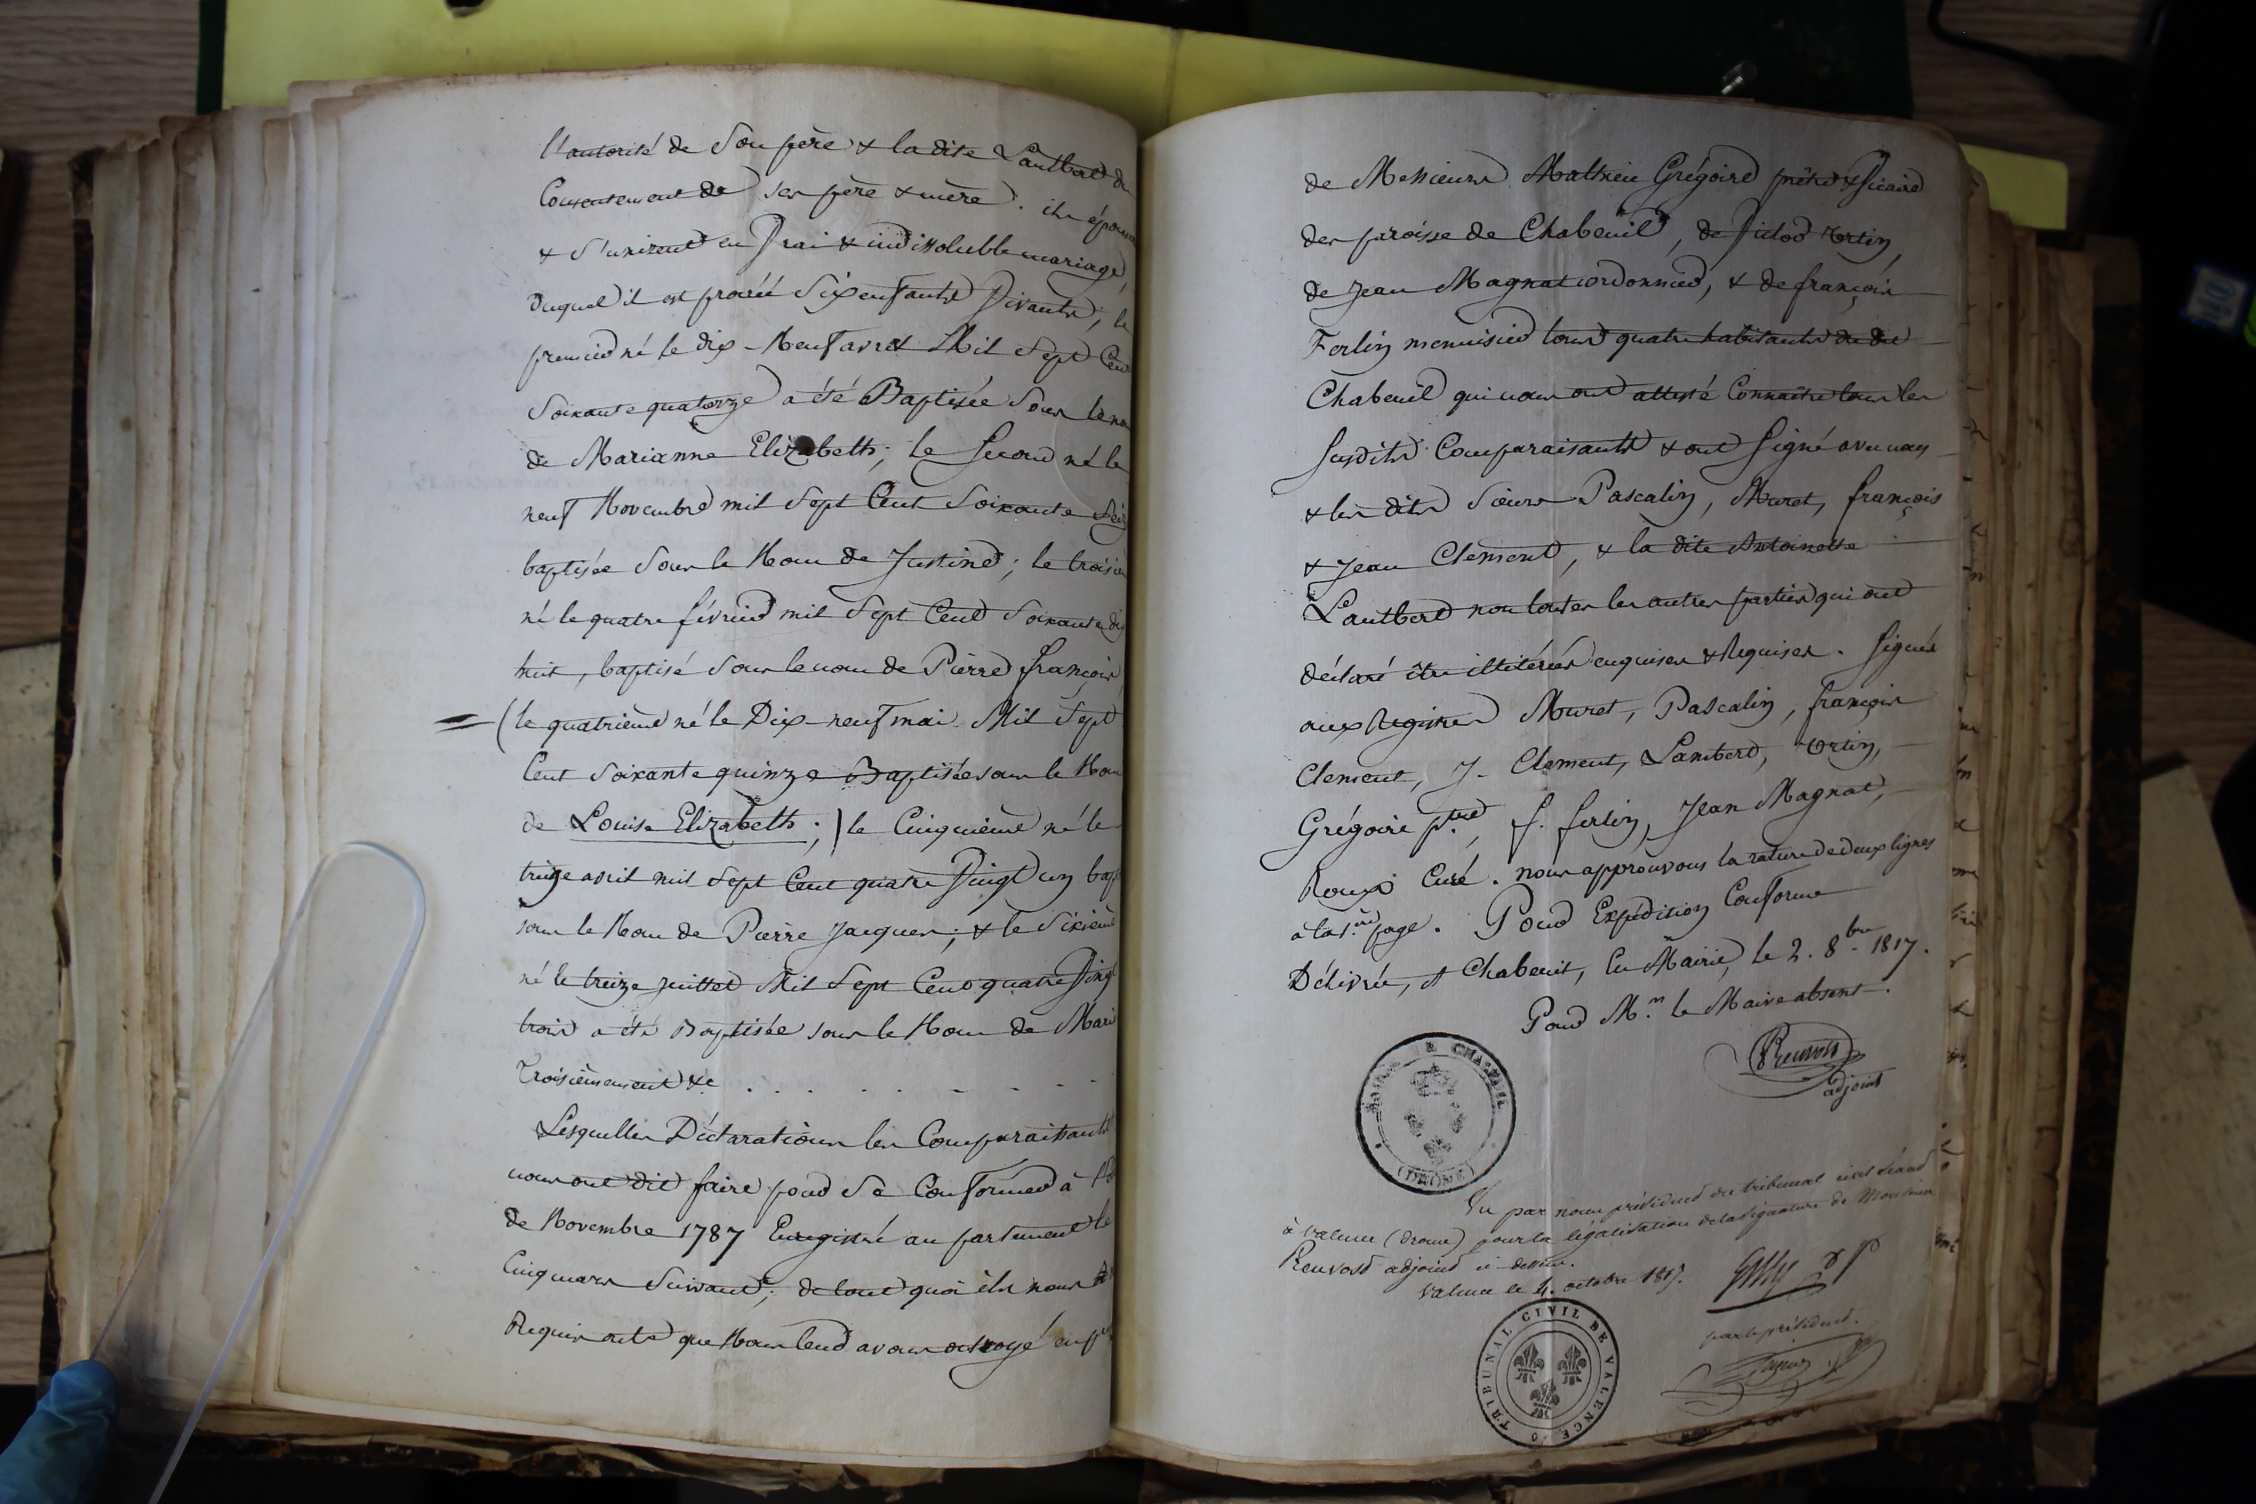 l'autorité de Son père & la dite Lantberd du
Consentement de ses père & mère. ils épous
& s'unirent en Vrai & indissoluble mariage,
duquel il est procéé Six enfants Vivants; le
premier né le dix-Neuf avril Mil Sept Cent
Soixante quatorze a été Baptisée Sous le nom
de Marianne Elizabeth; le Second né le
neuf Novembre mil Sept Cent Soixante Seiz
baptisée Sous le Nom de Justine; le troisie
né le quatre février mil Sept Cent Soixante dix
huit, baptisé Sous le nom de Pierre françois,
= (le quatrième né le Dix-neuf mai Mil Sept
Cent Soixante quinze Baptisée sous le Nom
de Louise Elizabeth;) le Cinquième né le
treize avril mil Sept Cent quatre Vingt un bap
sous le Nom de Pierre Jacques; & le Sixième
né le treize juillet Mil Sept Cent quatre Vingt
trois a été Baptisée sous le Nom de Mari
Troisièmement &c . . . . . . . .
Lesquelles Déclarations les Comparaissants
nous ont dit faire pour Se Conformer à
de Novembre 1787 Enregistré au parlement le
Cinq mars Suivant; de tout quoi ils nous
Requis acte que Nous leur avons octroyé en p
de Messieurs Mathieu Grégoire prêtre & Vicaire
des paroisse de Chabeuil, de Victor Ortin,
de Jean Magnat cordonnier, & de françois
Ferlin menuisier tous quatre habitants du dit
Chabeuil qui nous ont attesté Connaître tous les
Susdits Comparaisants & ont Signé avec nous
& les dits Sieurs Pascalin, Muret, françois
& Jean Clement, & la dite Antoinette
Lantberd non toutes les autres parties qui ont
déclaré être illitérées enquises & Requises. Signés
aux Registres Muret, Pascalin, françois
Clement, J. Clement, Lamberd, Ortin,
Grégoire ptre, f. ferlin, Jean Magnat,
Roux Curé. nous approuvons la rature de deux lignes
à la 1.ère page. Pour Expédition Conforme
Délivrée, A Chabeuil, En Mairie, le 2. 8.bre 1817.
Pour M.r le Maire absent.
adjoint
MAIRIE DE CHABEUIL
(DROME)
Vu par nous président du tribunal civil séant
à Valence (Drome) pour la légalisation de la signature de Monsieur
Reuvoid adjoint ci-dessus.
Valence le 4. octobre 1817.
par le président.
TRIBUNAL CIVIL DE VALENCE